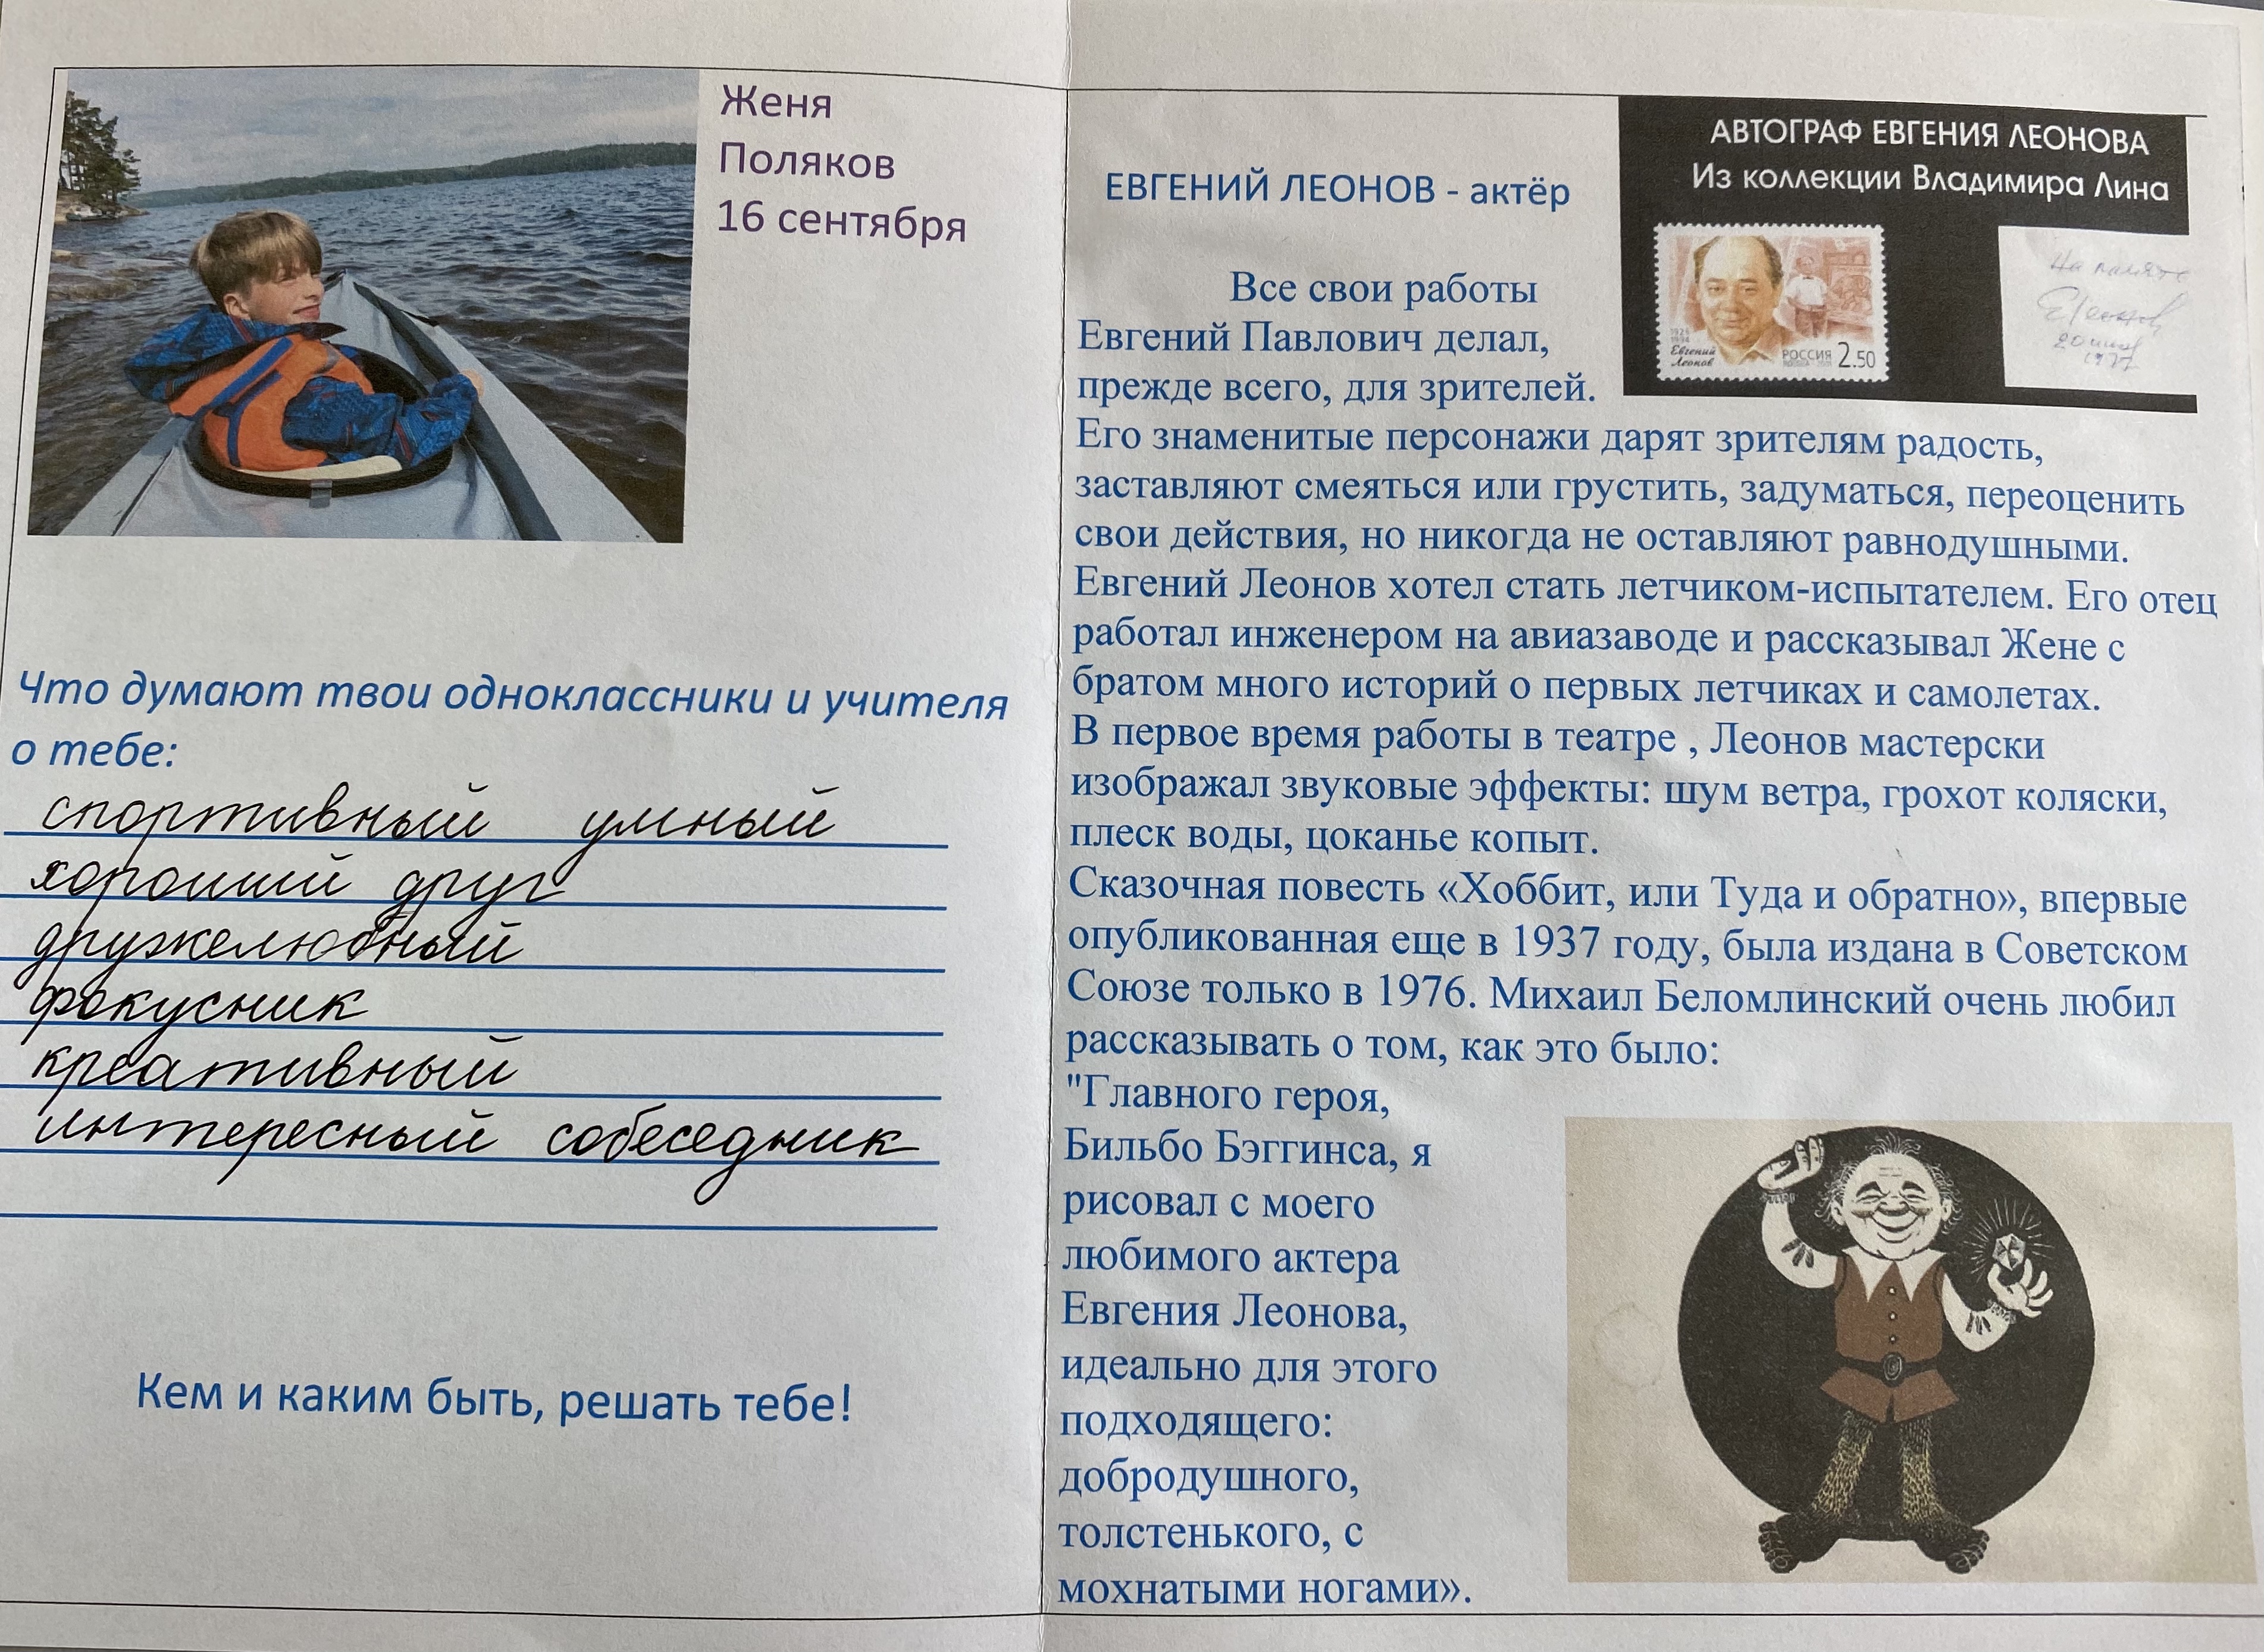 Женя
Поляков
16 сентября
Что думают твои одноклассники и учителя
о тебе:
спортивный умный
хороший друг
дружелюбный
фокусник
креативный
интересный собеседник
Кем и каким быть, решать тебе!
АВТОГРАФ ЕВГЕНИЯ ЛЕОНОВА
Из коллекции Владимира Лина
1926
1994
Евгений
Леонов
РОССИЯ 2.50
На память
ЕЛеонов
1977
ЕВГЕНИЙ ЛЕОНОВ - актёр
Все свои работы
Евгений Павлович делал,
прежде всего, для зрителей.
Его знаменитые персонажи дарят зрителям радость,
заставляют смеяться или грустить, задуматься, переоценить
свои действия, но никогда не оставляют равнодушными.
Евгений Леонов хотел стать летчиком-испытателем. Его отец
работал инженером на авиазаводе и рассказывал Жене с
братом много историй о первых летчиках и самолетах.
В первое время работы в театре , Леонов мастерски
изображал звуковые эффекты: шум ветра, грохот коляски,
плеск воды, цоканье копыт.
Сказочная повесть «Хоббит, или Туда и обратно», впервые
опубликованная еще в 1937 году, была издана в Советском
Союзе только в 1976. Михаил Беломлинский очень любил
рассказывать о том, как это было:
"Главного героя,
Бильбо Бэггинса, я
рисовал с моего
любимого актера
Евгения Леонова,
идеально для этого
подходящего:
добродушного,
толстенького, с
мохнатыми ногами».